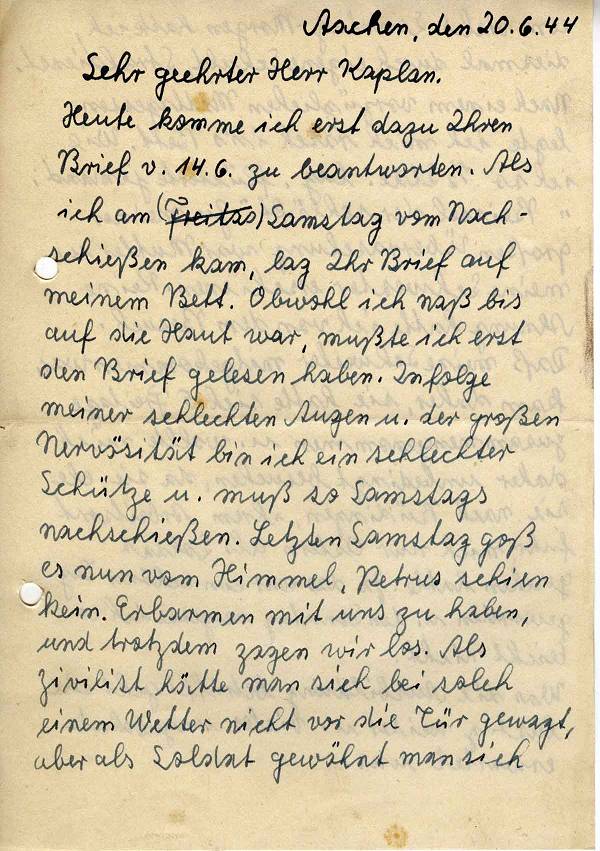 Aachen, den 20.6.44
Sehr geehrter Herr Kaplan.
Heute komme ich erst dazu Ihren
Brief v. 14.6. zu beantworten. Als
ich am (Freitag) Samstag vom Nach-
schießen kam, lag Ihr Brief auf
meinem Bett. Obwohl ich naß bis
auf die Haut war, mußte ich erst
den Brief gelesen haben. Infolge
meiner schlechten Augen u. der großen
Nervösität bin ich ein schlechter
Schütze u. muß so Samstags
nachschießen. Letzten Samstag goß
es nun vom Himmel, Petrus schien
kein Erbarmen mit uns zu haben,
und trotzdem zogen wir los. Als
Zivilist hätte man sich bei solch
einem Wetter nicht vor die Tür gewagt,
aber als Soldat gewöhnt man sich